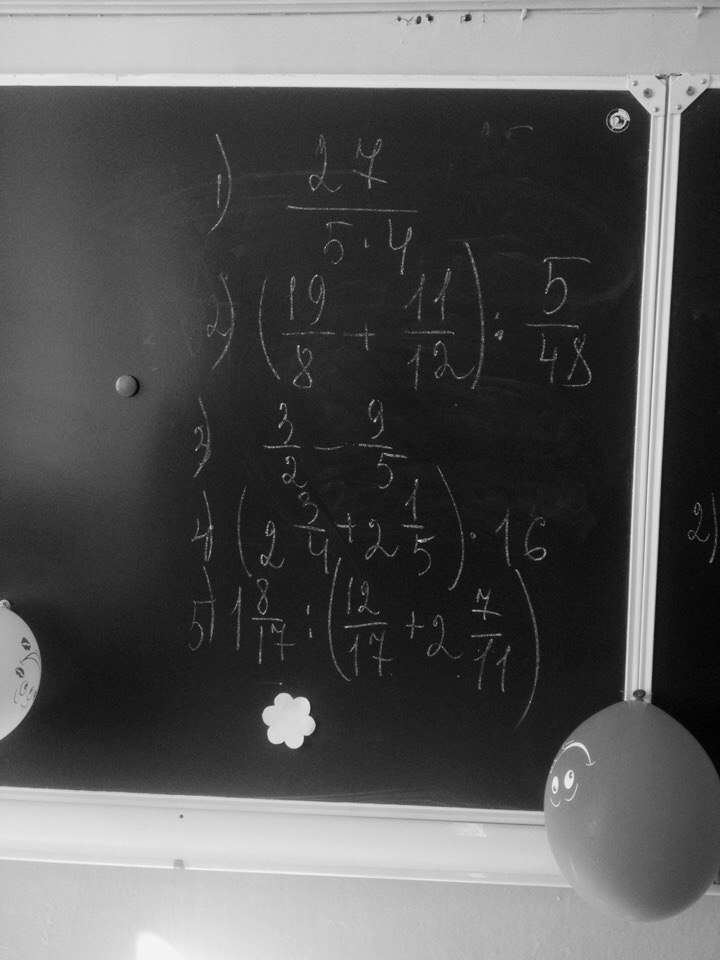 1) 27/(5·4)
2) (19/8 + 11/12) : 5/48
3) 3/2 - 9/5
4) (2 3/4 + 2 1/5) · 16
5) 1 8/17 : (12/17 + 2 7/11)
2)